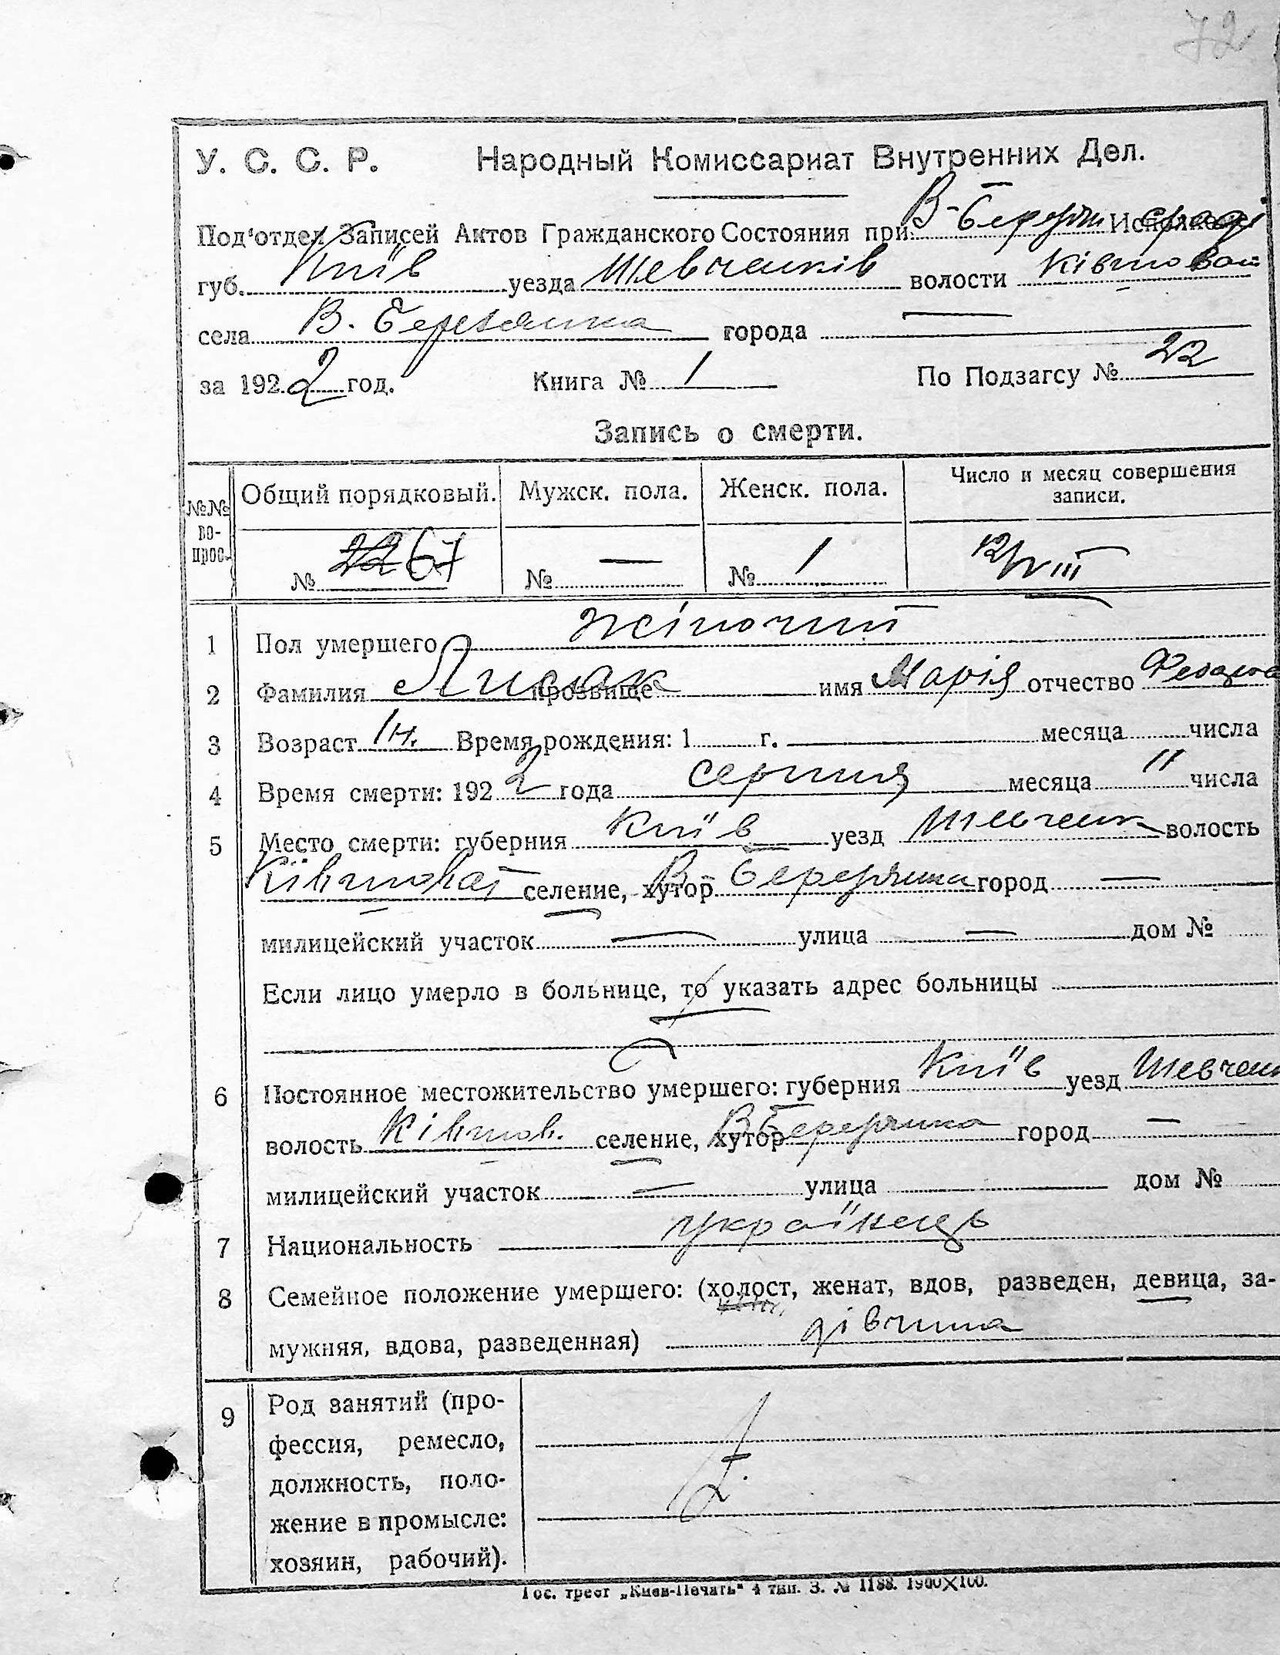 72
У. С. С. Р. Народный Комиссариат Внутренних Дел.
Под'отдел Записей Актов Гражданского Состояния при В-Березян
губ. Київ уезда Шевченків волости Ківшоват
села В. Березянка города —
за 1922 год. Книга № 1 По Подзагсу № 22
Запись о смерти.
№№ вопрос. Общий порядковый. Мужск. пола. Женск. пола. Число и месяц совершения записи.
№ 22 67 № — № 1 12/VIII
1 Пол умершего жіночий
2 Фамилия Лисак прозвище имя Марія отчество
3 Возраст 1н. Время рождения: 1 г. — месяца числа
4 Время смерти: 1922 года серпня месяца 11 числа
5 Место смерти: губерния Київ уезд Шевченк волость
Ківшоват селение, хутор В Березянка город —
милицейский участок — улица — дом №
Если лицо умерло в больнице, то указать адрес больницы
6 Постоянное местожительство умершего: губерния Київ уезд Шевчен
волость Ківшов. селение, хутор В Березянка город —
милицейский участок — улица дом №
7 Национальность українець
8 Семейное положение умершего: (холост, женат, вдов, разведен, девица, за-
мужняя, вдова, разведенная) дівчина
9 Род занятий (про-
фессия, ремесло,
должность, поло-
жение в промысле:
хозяин, рабочий).
Гос. трест „Киев-Печать" 4 тип. З. № 1188. 1900×100.